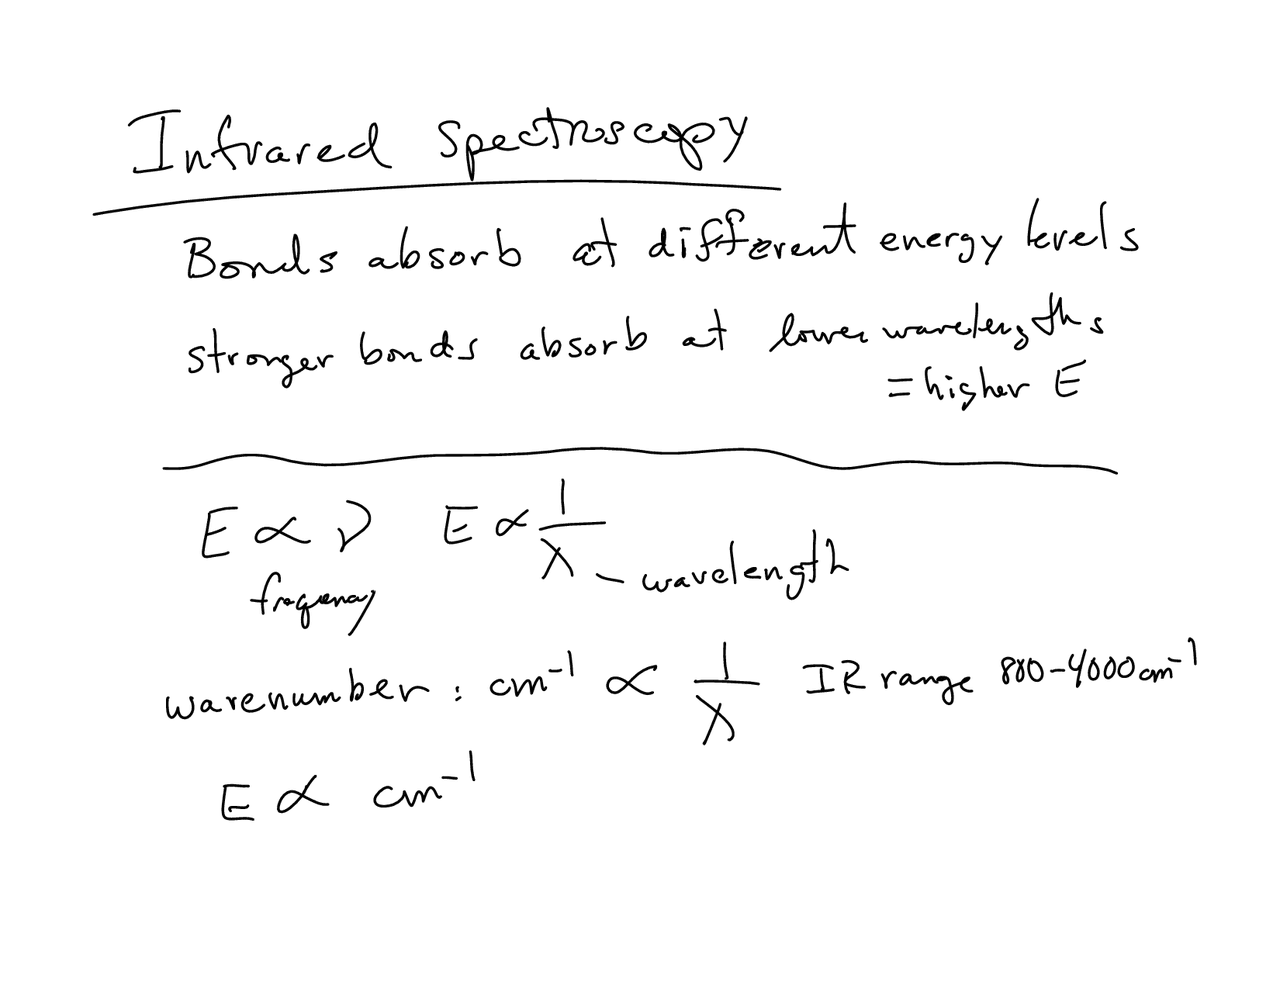 Infrared Spectroscopy
Bonds absorb at different energy levels
stronger bonds absorb at lower wavelengths
= higher E
E ∝ ν E ∝ 1/λ - wavelength
frequency
wavenumber : cm⁻¹ ∝ 1/λ IR range 800-4000 cm⁻¹
E ∝ cm⁻¹